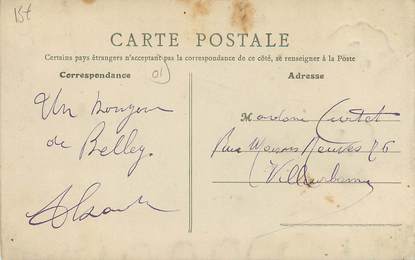 15t
CARTE POSTALE
Certains pays étrangers n'acceptant pas la correspondance de ce côté, se renseigner à la Poste
Correspondance
01
Adresse
Un bonjour
de Belley.
Madame Curtet
Rue
Villeurbanne